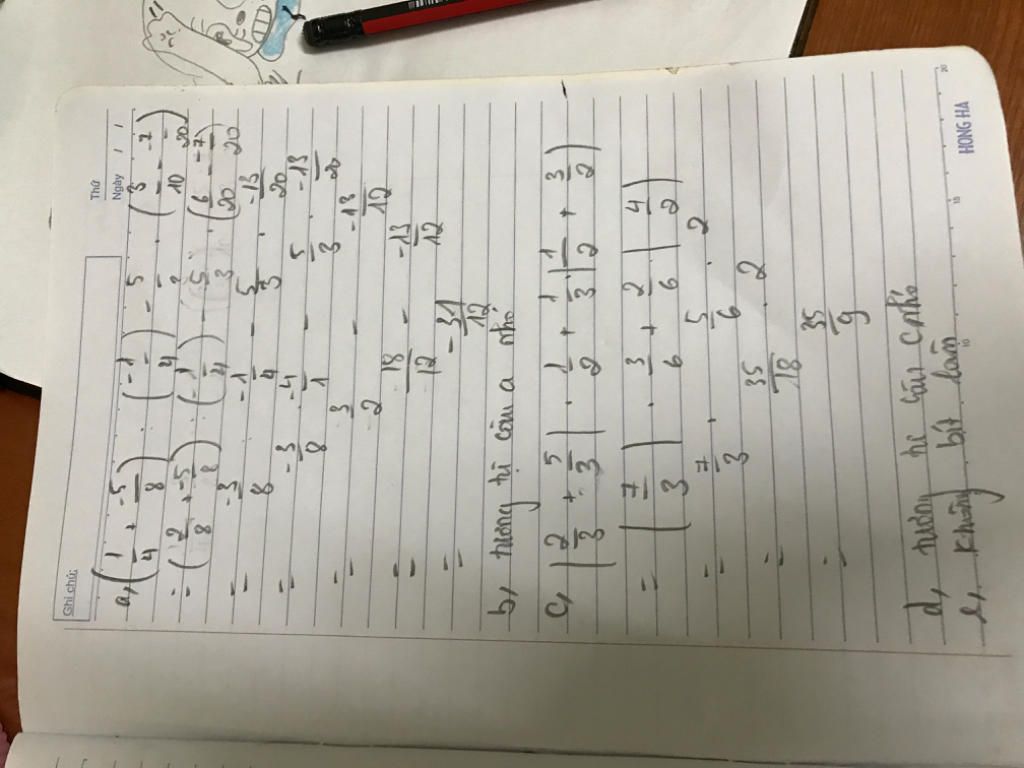 Thứ
Ngày / /
Ghi chú:
a, (1/4 + -5/8) : (-1/4) - 5/3 . (3/10 - -7/20)
= (2/8 + -5/8) : (-1/4) - 5/3 . (6/20 - -7/20)
= -3/8 : -1/4 - 5/3 . -13/20
= -3/8 . -4/1 - 5/3 . -13/20
= 3/2 - -13/12
= 18/12 - -13/12
= - 31/12
b, tương tự câu a nhé
c, |2/3 + 5/3| . |1/2 + 1/3| |1/2 + 3/2|
= |7/3| . |3/6 + 2/6| |4/2|
= 7/3 . 5/6 . 2
= 35/18 . 2
= 35/9
d, tương tự câu c nhé
e, không bít làm
HONG HA
10
15
20